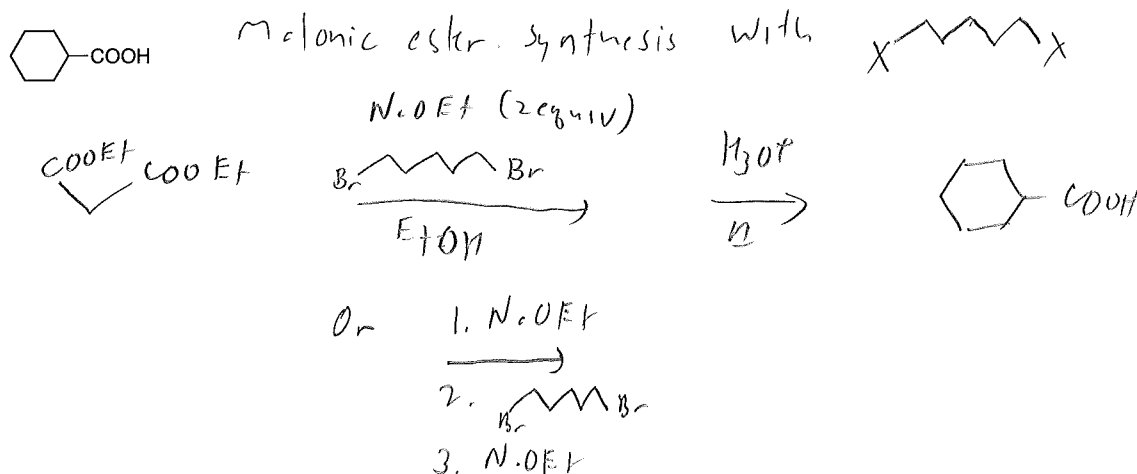 COOH Malonic ester synthesis with X X
NaOEt (2equiv)
COOEt COOEt Br Br H3O+ COOH
EtOH
Or 1. NaOEt
2. Br Br
3. NaOEt